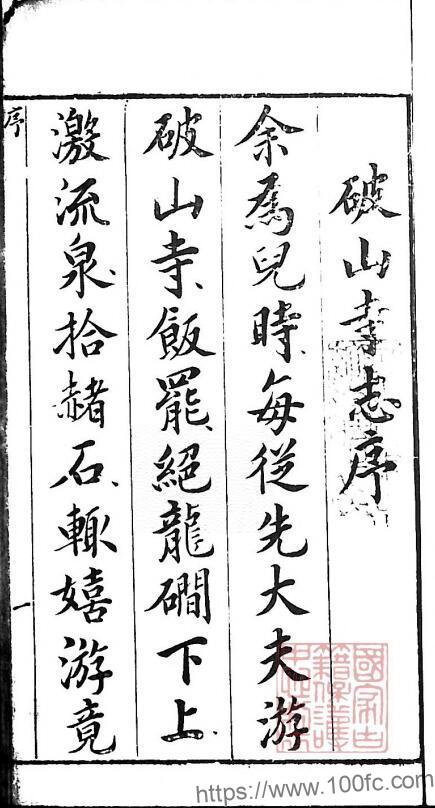 破山寺志序
余爲兒時、每從先大夫游
破山寺、飯罷、絕龍磵下上、
激流泉、拾赭石、輙嬉游竟
序
一
國家古
籍保護
https://www.100fc.com